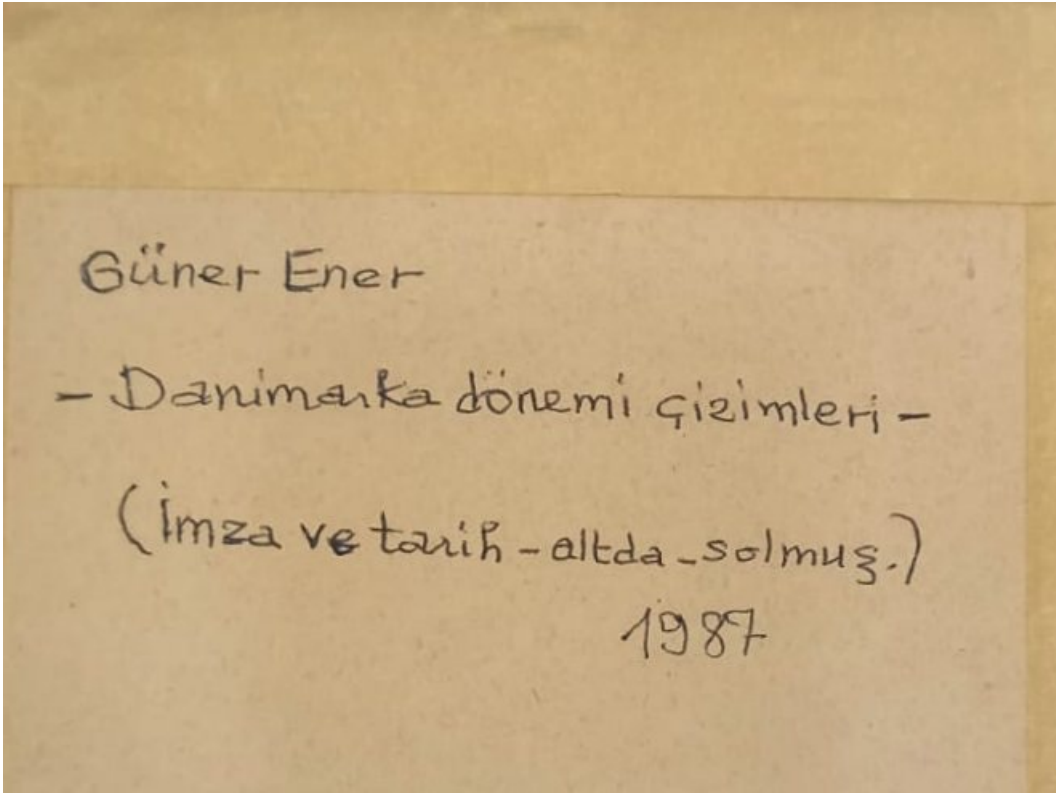 Güner Ener
- Danimarka dönemi çizimleri -
(İmza ve tarih - altda - solmuş.)
1987